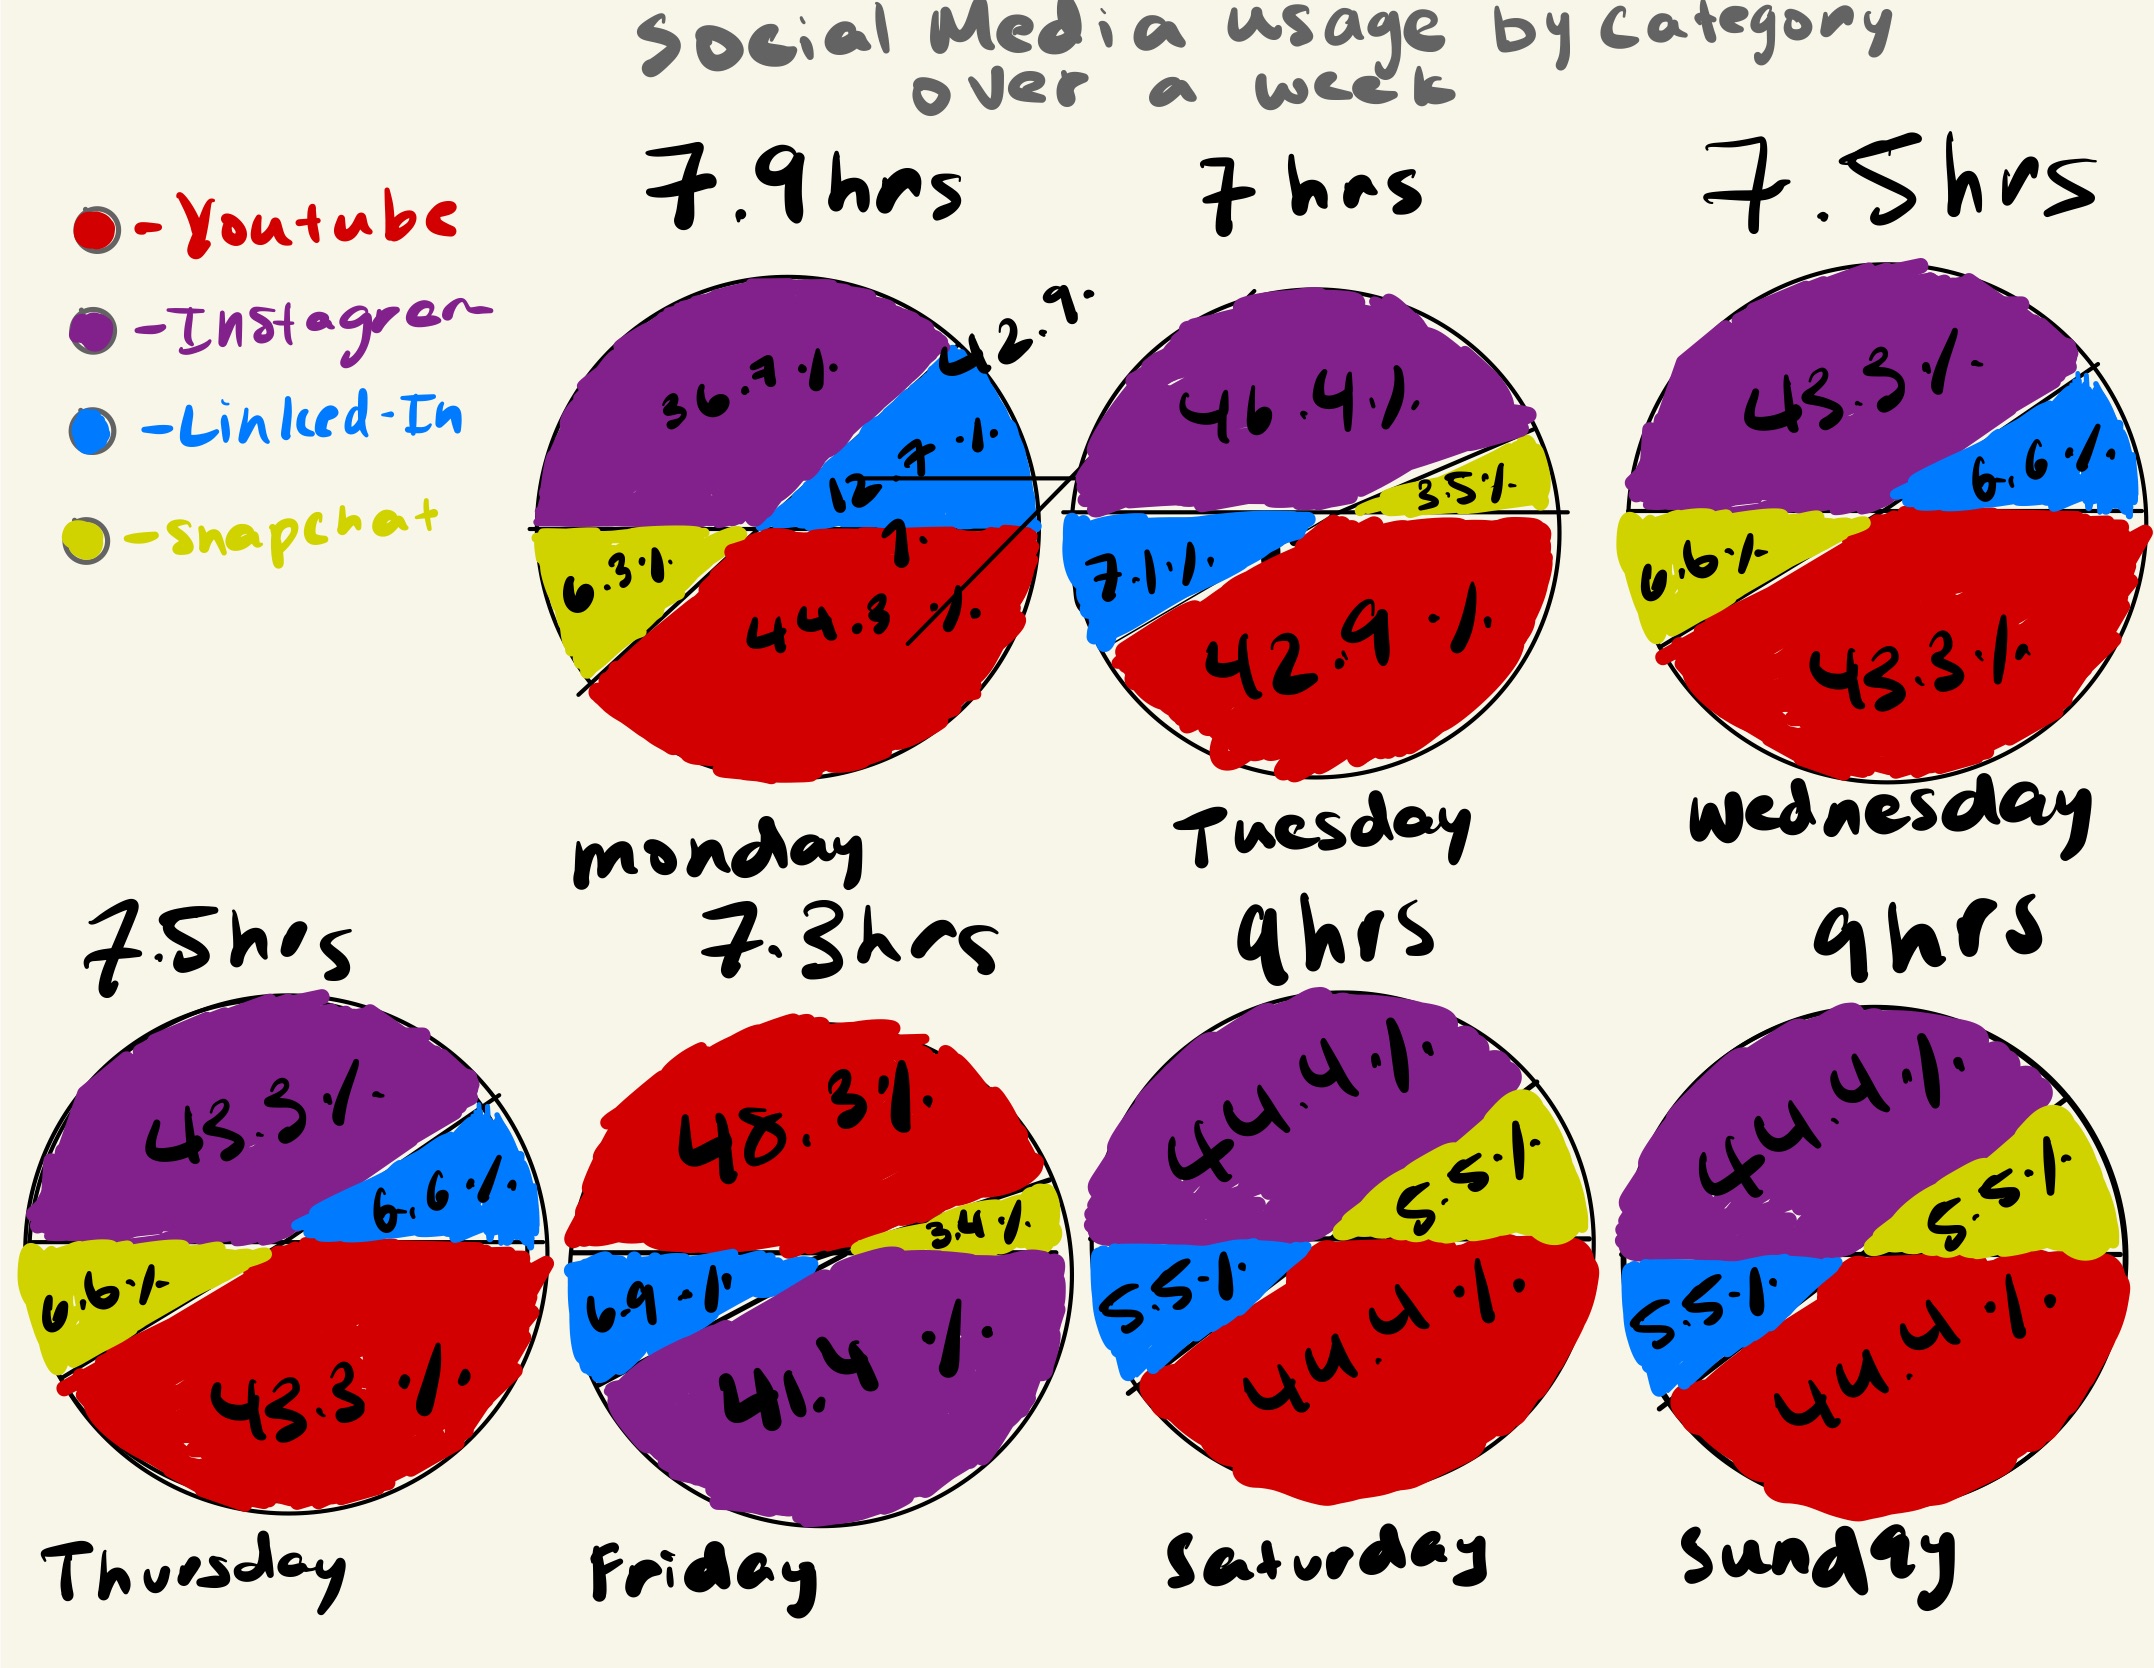 Social Media usage by Category
over a week
- Youtube
- Instagram
- Linked-In
- Snapchat
7.9hrs
36.7%
12.7%
6.3%
44.3%
42.9.
monday
7hrs
46.4%
3.5%
7.1%
42.9%
Tuesday
7.5hrs
43.3%
6.6%
6.6%
43.3%
Wednesday
7.5hrs
43.3%
6.6%
6.6%
43.3%
Thursday
7.3hrs
48.3%
3.4%
6.9%
41.4%
Friday
9hrs
44.4%
5.5%
5.5%
44.4%
Saturday
9hrs
44.4%
5.5%
5.5%
44.4%
Sunday